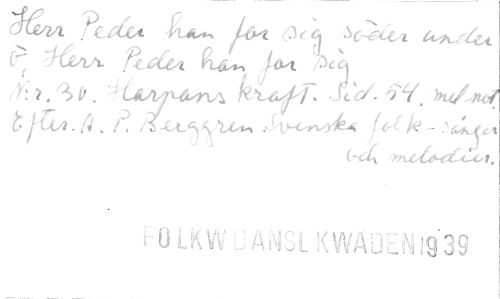 Herr Peder han for sig söder under
ö, Herr Peder han for sig
N:r. 30. Harpans kraft. Sid. 54. mel. not.
Efter. A. P. Berggren. Svenska folk-sånger
och melodier.
FOLKW DANSL KWÄDEN 1939